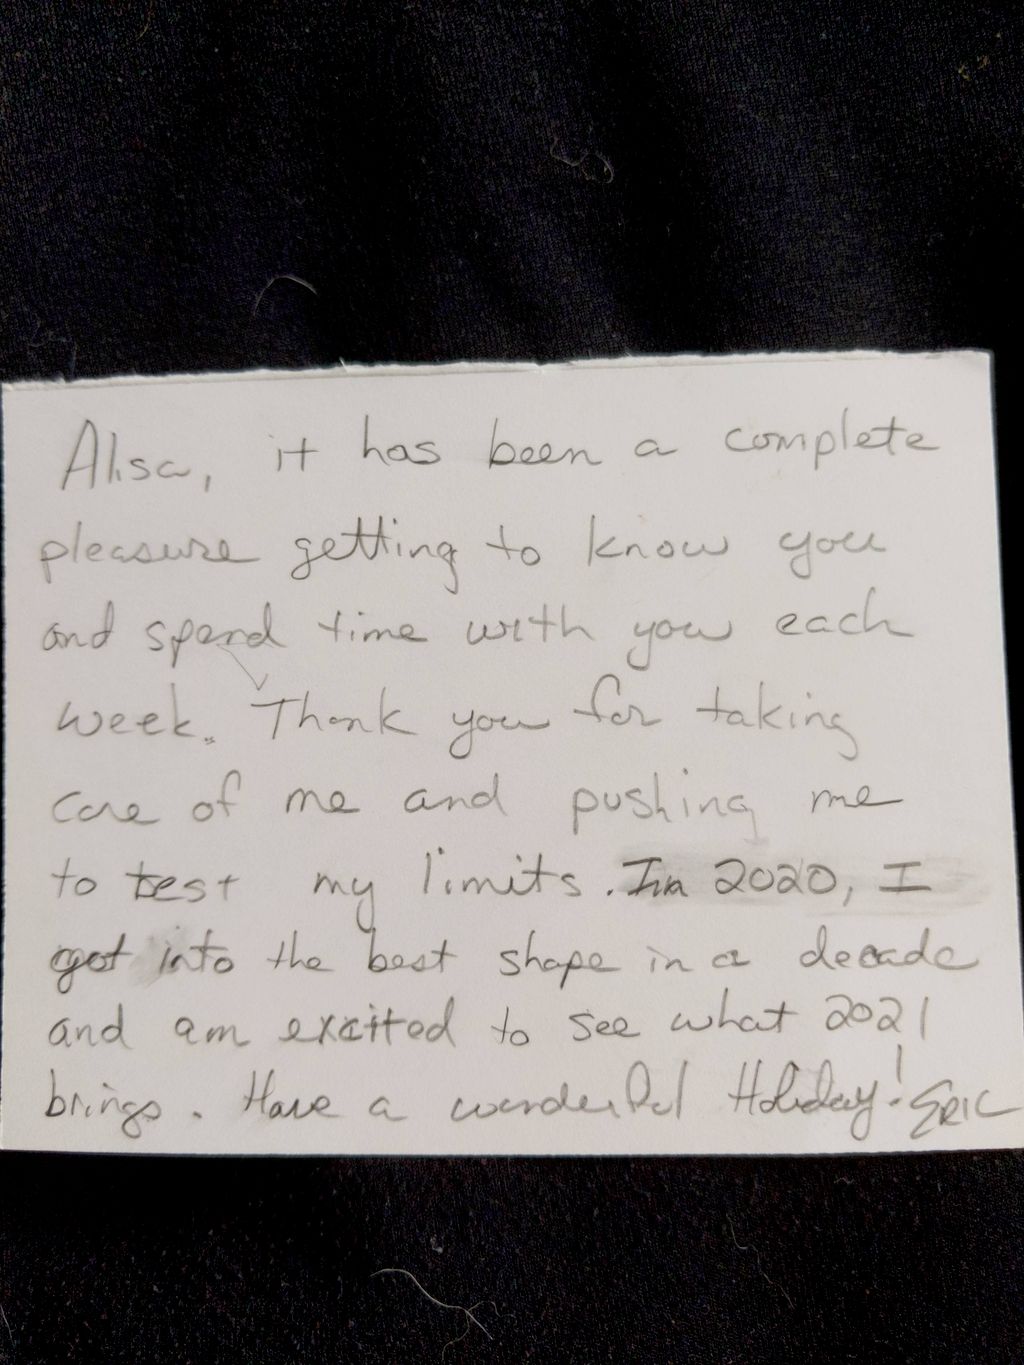 Alisa, it has been a complete
pleasure getting to know you
and spend time with you each
week. Thank you for taking
care of me and pushing me
to test my limits. In 2020, I
got into the best shape in a decade
and am excited to see what 2021
brings. Have a wonderful Holiday! ERIC